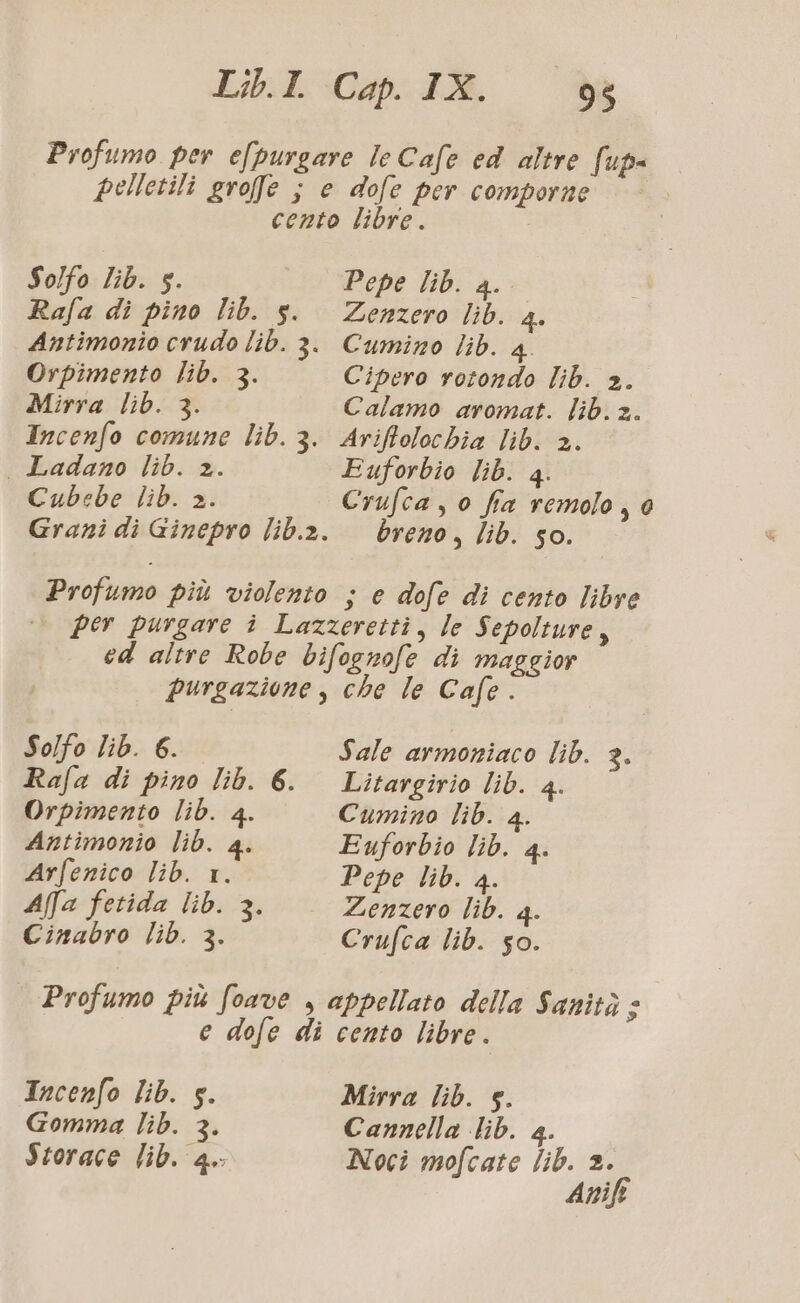 Lib. I. Cap. IX. 95
Profumo per eſpurgare le Caſe ed altre ſup-
pelletili groſſe ; e doſe per comporne
cento libre.
Solfo lib. 5.
Raſa di pino lib. 5.
Antimonio crudo lib. 3.
Orpimento lib. 3.
Mirra lib. 3.
Incenſo comune lib. 3.
Ladano lib. 2.
Cubebe lib. 2.
Grani di Ginepro lib.2.
Pepe lib. 4.
Zenzero lib. 4.
Cumino lib. 4.
Cipero rotondo lib. 2.
Calamo aromat. lib. 2.
Ariſtolochia lib. 2.
Euforbio lib. 4.
Cruſca, o ſia remolo, o
breno, lib. 50.
Profumo più violento ; e doſe di cento libre
per purgare i Lazzeretti, le Sepolture,
ed altre Robe biſognoſe di maggior
purgazione, che le Caſe.
Solfo lib. 6.
Raſa di pino lib. 6.
Orpimento lib. 4.
Antimonio lib. 4.
Arſenico lib. 1.
Aſſa fetida lib. 3.
Cinabro lib. 3.
Sale armoniaco lib. 3.
Litargirio lib. 4.
Cumino lib. 4.
Euforbio lib. 4.
Pepe lib. 4.
Zenzero lib. 4.
Cruſca lib. 50.
Profumo più ſoave, appellato della Sanità ;
e doſe di cento libre.
Incenſo lib. 5.
Gomma lib. 3.
Storace lib. 4.
Mirra lib. 5.
Cannella lib. 4.
Noci moſcate lib. 2.
Aniſi